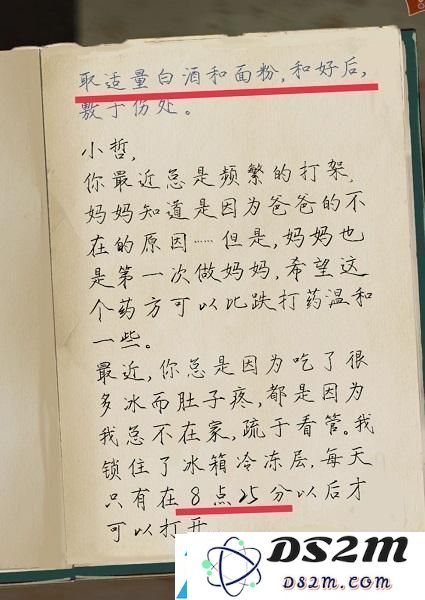 取适量白酒和面粉,和好后,
敷于伤处。
小哲,
你最近总是频繁的打架,
妈妈知道是因为爸爸的不
在的原因……但是,妈妈也
是第一次做妈妈,希望这
个药方可以比跌打药温和
一些。
最近,你总是因为吃了很
多冰而肚子疼,都是因为
我总不在家,疏于看管。我
锁住了冰箱冷冻层,每天
只有在8点25分以后才
可以打开
DS2M
DS2m.com